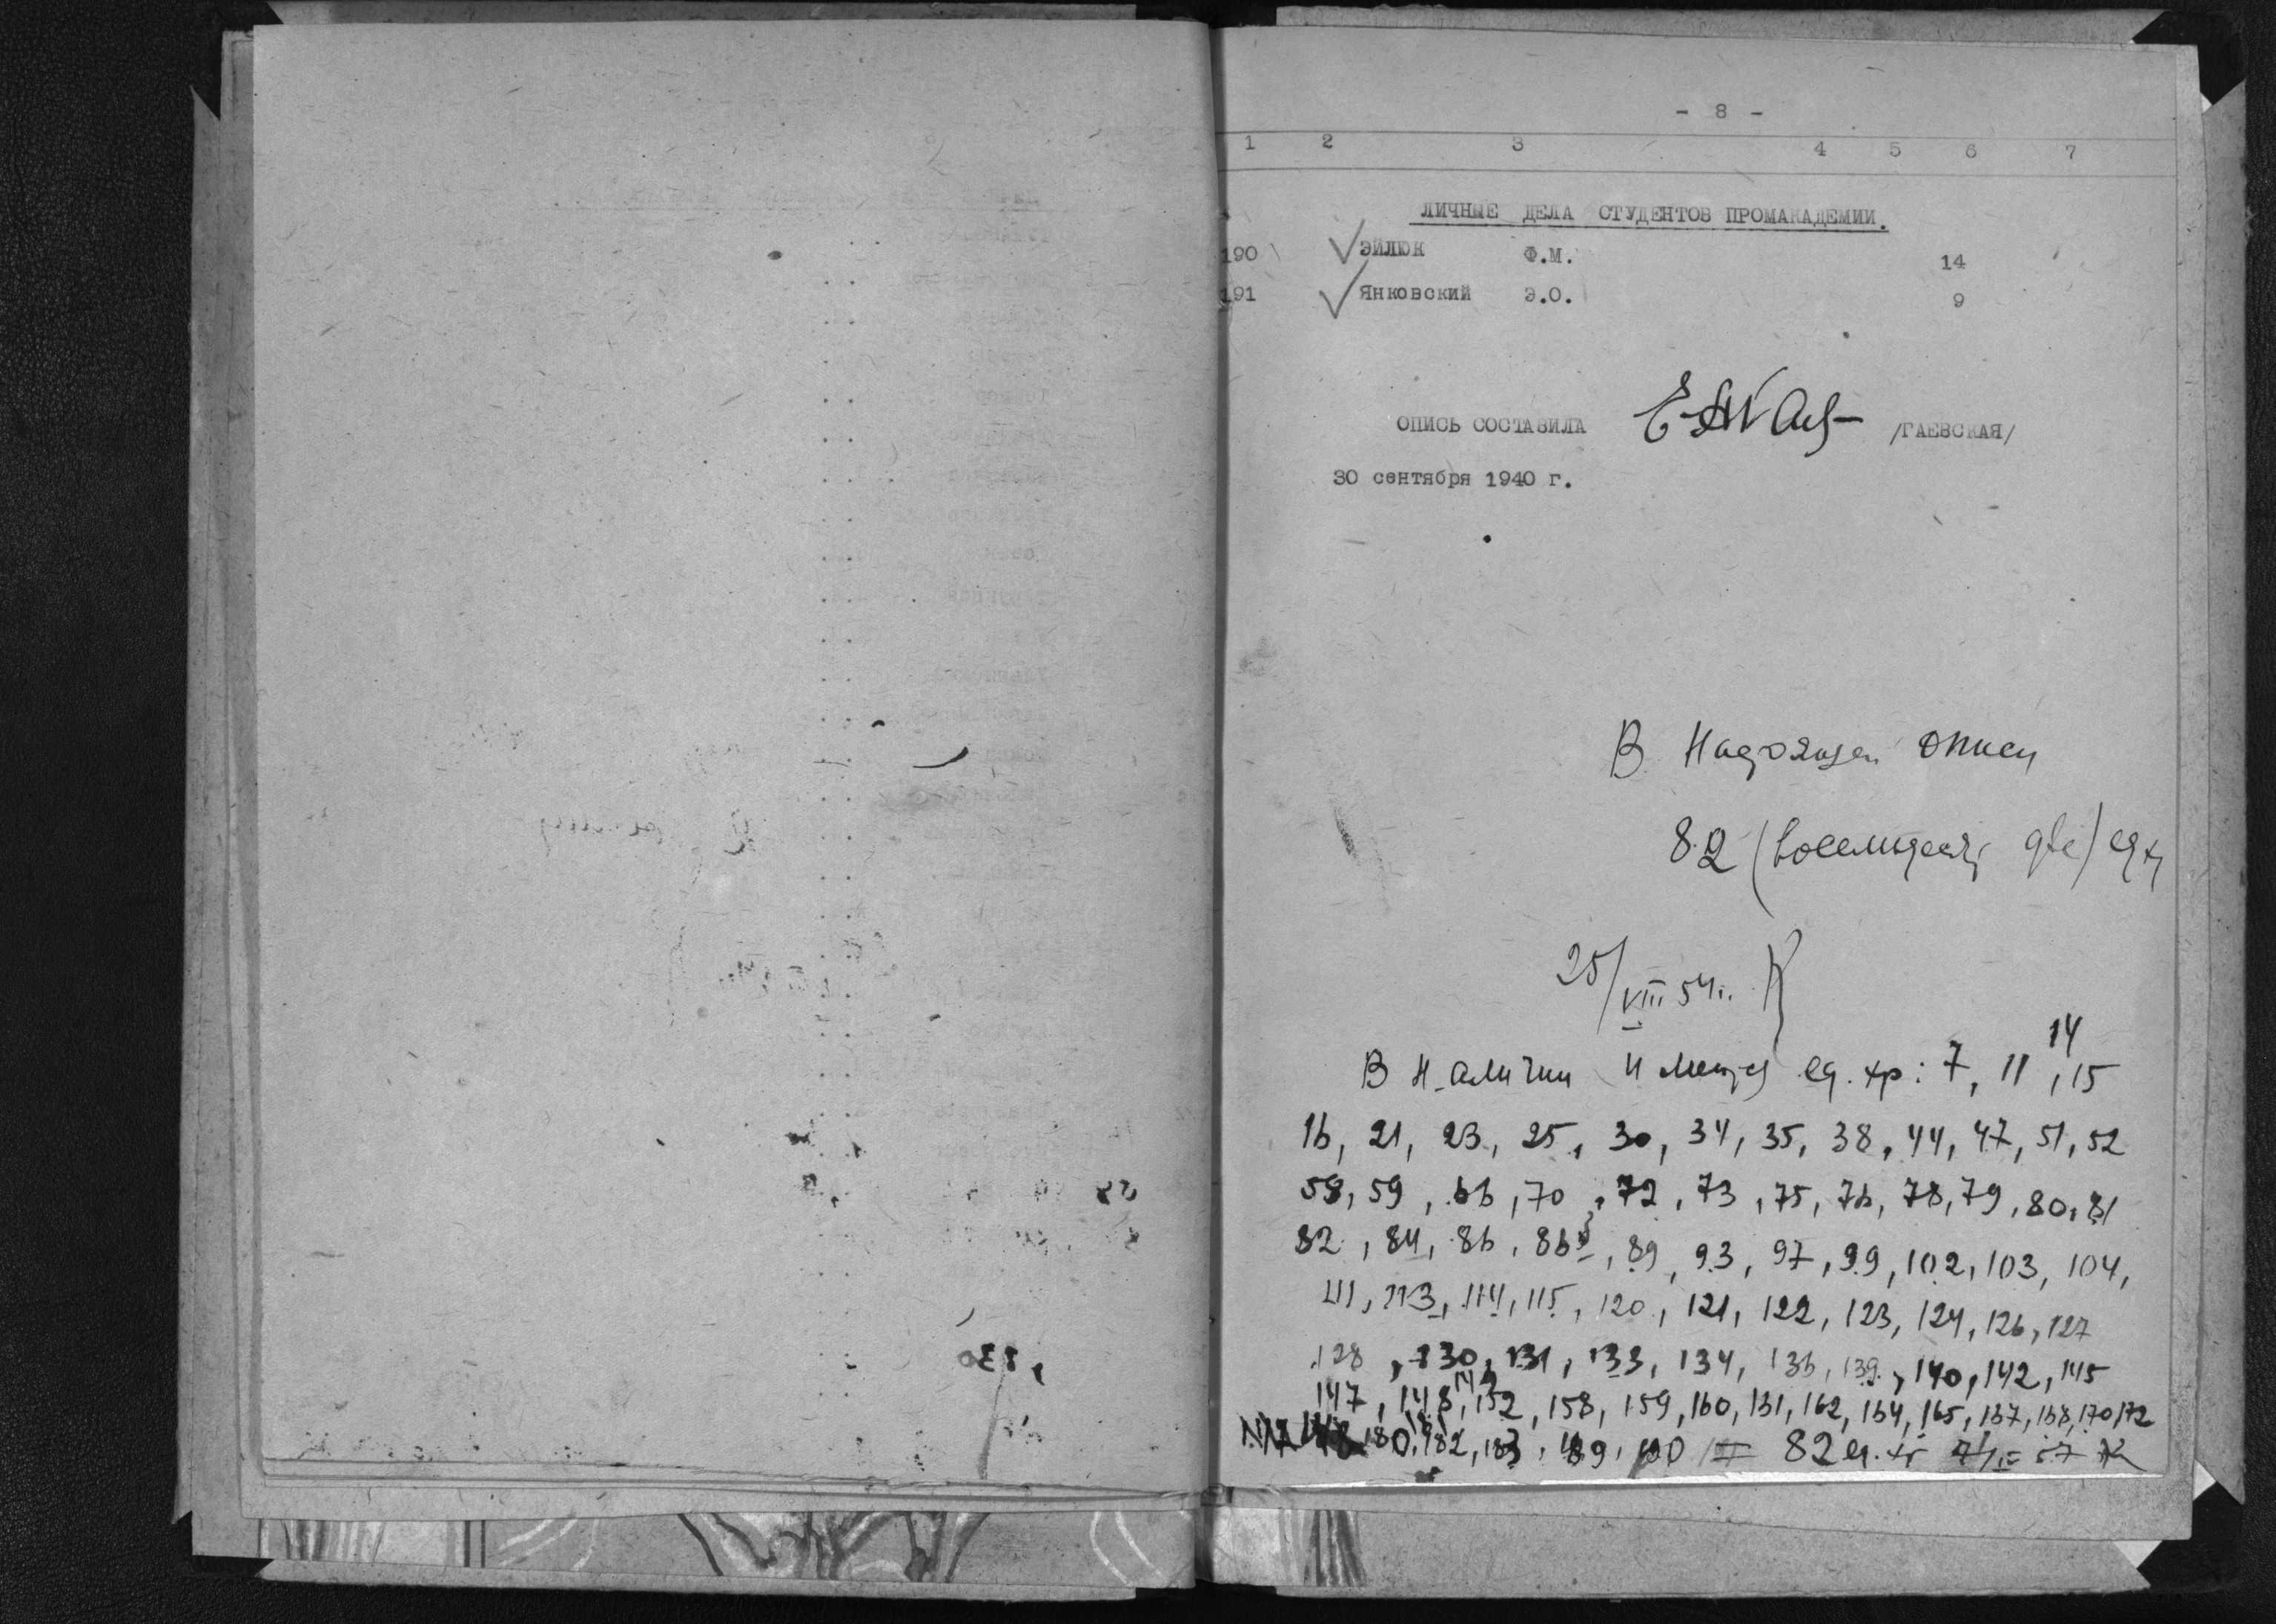 - 8 -
1 2 3 4 5 6 7
ЛИЧНЫЕ ДЕЛА СТУДЕНТОВ ПРОМАКАДЕМИИ.
190 ЭЙЛЮК Ф.М. 14
191 Янковский Э.О. 9
ОПИСЬ СОСТАВИЛА /ГАЕВСКАЯ/
30 сентября 1940 г.
В настоящей описи
82 (восемьдесят две) ед.х
25/VIII 54 г.
14
В наличии имеются ед. хр: 7, 11, 15
16, 21, 23, 25, 30, 34, 35, 38, 44, 47, 51, 52
58, 59, 66, 70, 72, 73, 75, 76, 78, 79, 80, 81
82, 84, 86, 86, 89, 93, 97, 99, 102, 103, 104,
111, 113, 114, 115, 120, 121, 122, 123, 124, 126, 127
128, 130, 131, 133, 134, 136, 139, 140, 142, 145
147, 148, 149, 152, 158, 159, 160, 161, 162, 164, 165, 167, 168, 170, 172
180, 181, 182, 183, 189, 190 82 ед. хр